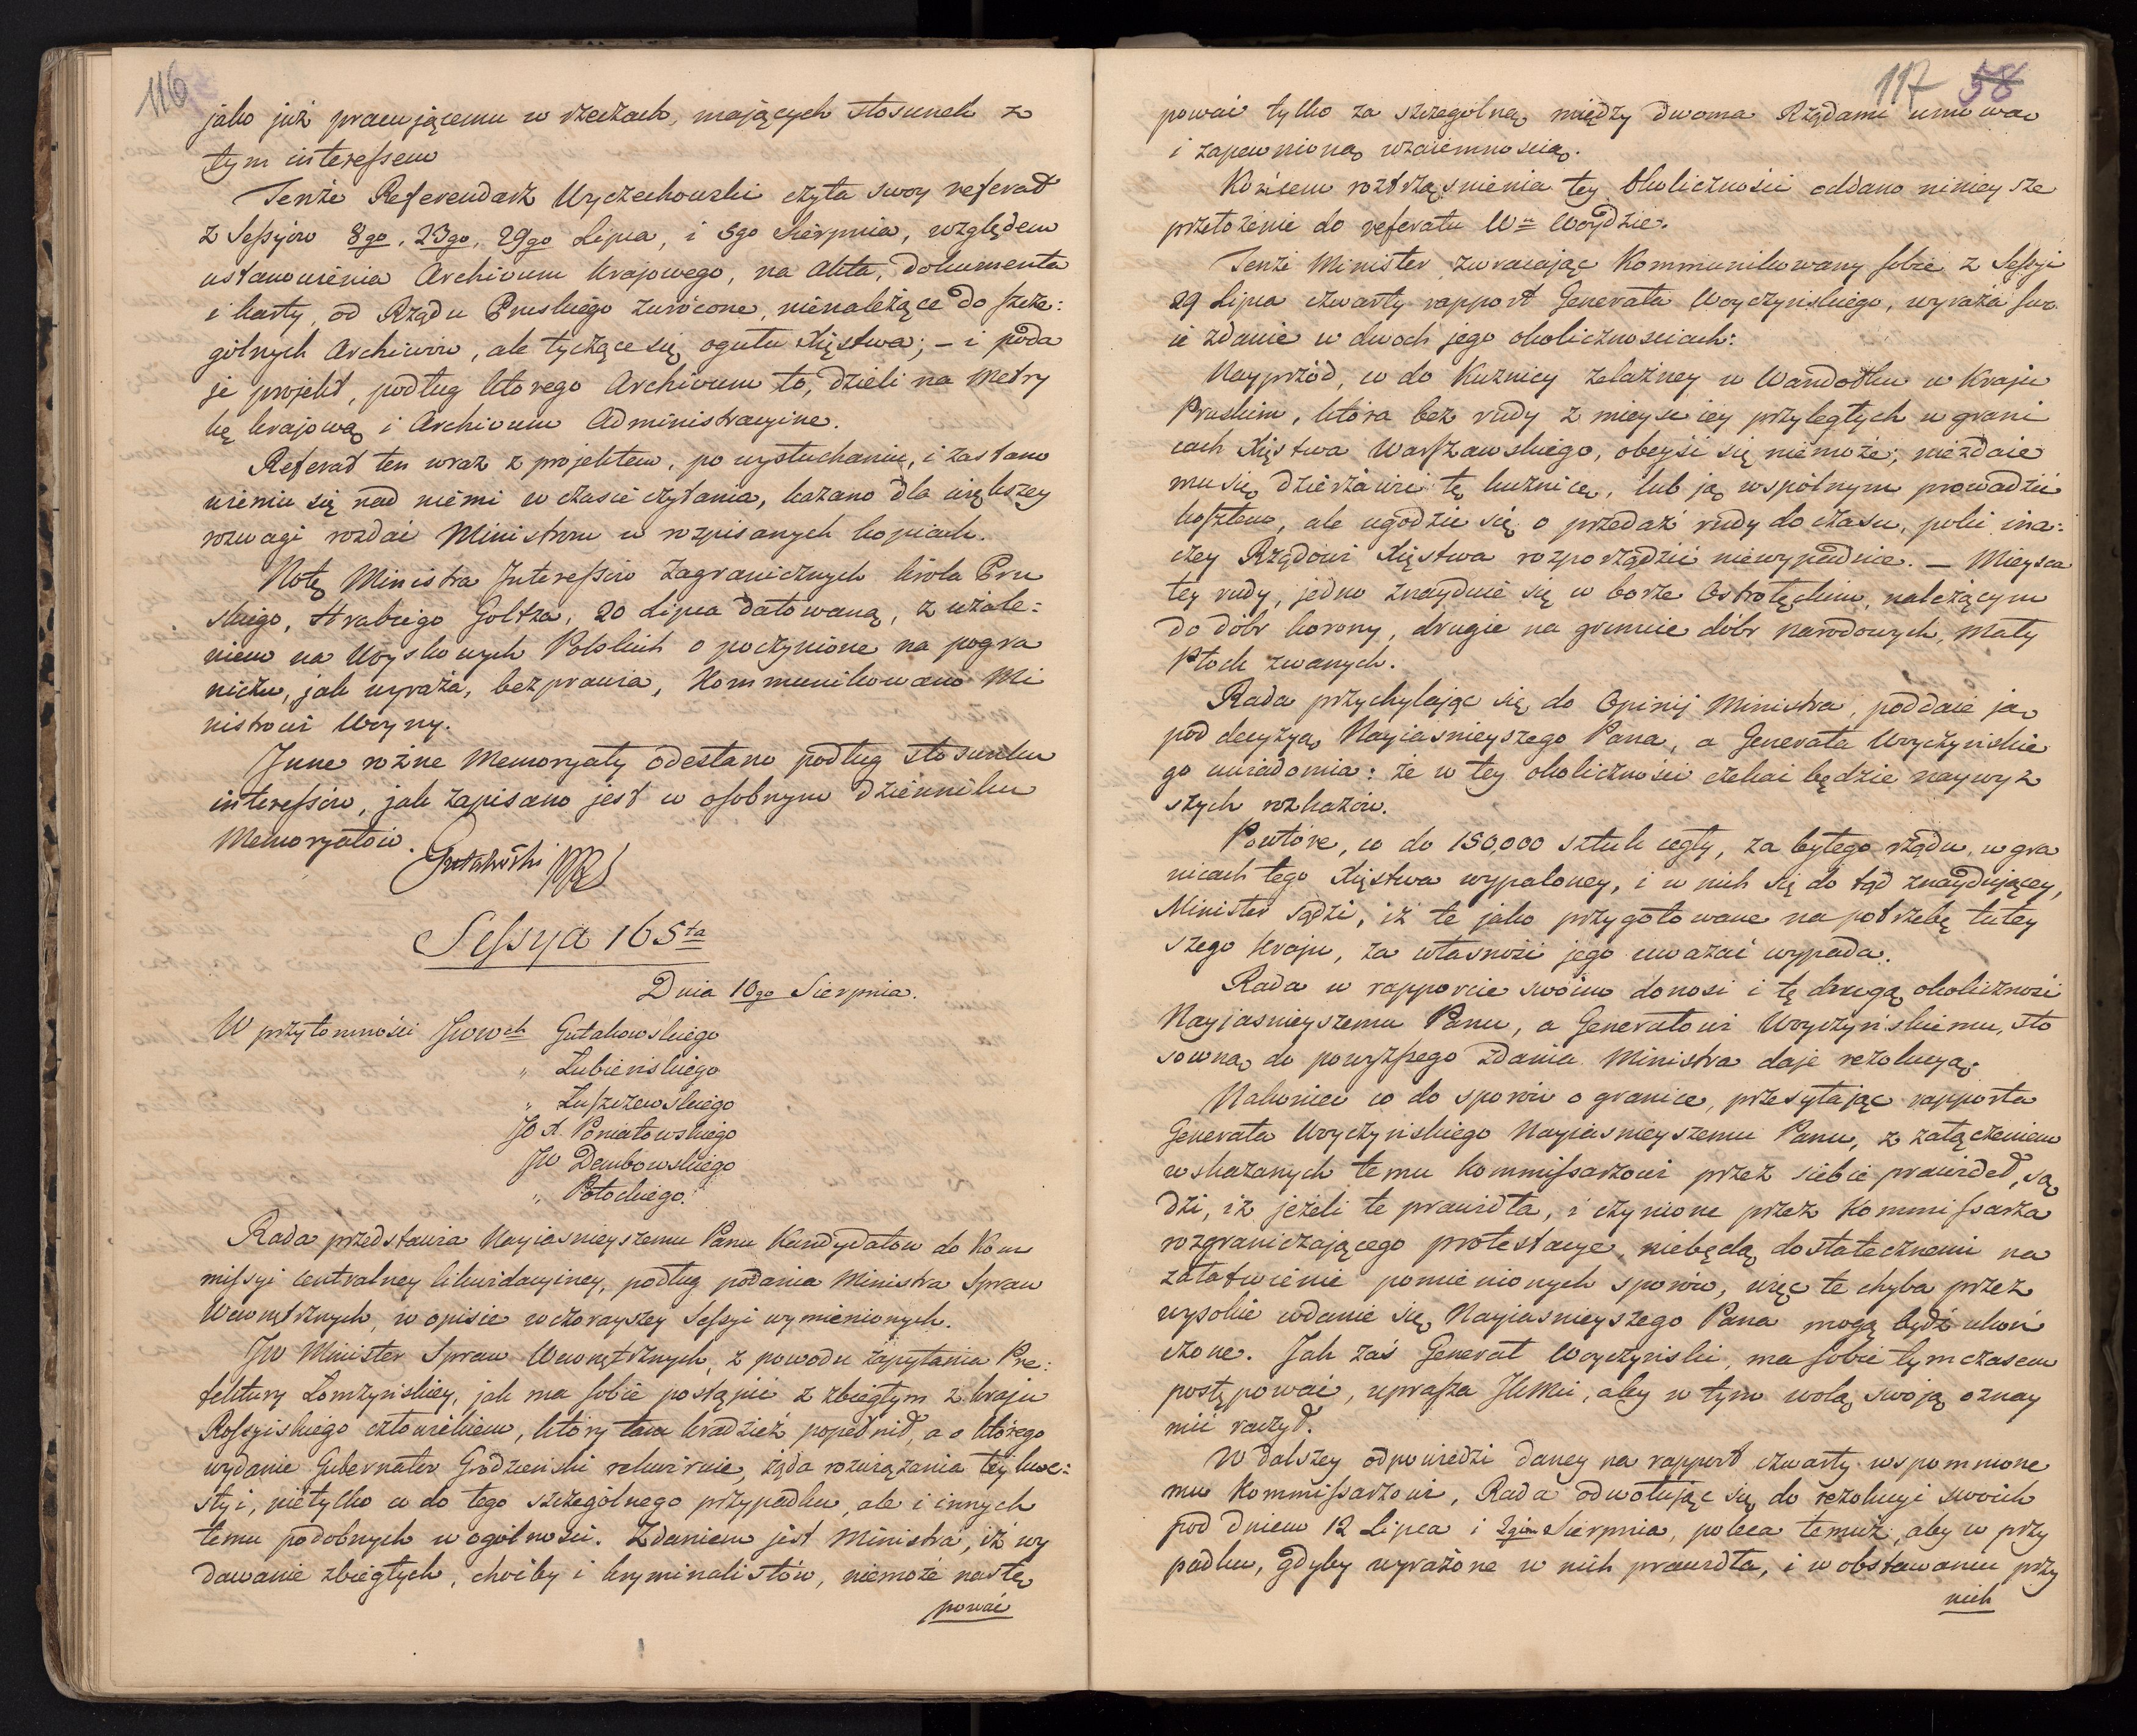 116
jako już pracującemu w rzeczach, mających stosunek z
tym interessem
Tenże Referendarz Wyczechowski czyta swoy referat
z Sessyiow 8go, 23go, 29go Lipca, i 5go Sierpnia, względem
ustanowienia Archivum krajowego, na Akta, dokumenta
i karty, od Rządu Pruskiego zwrócone, nienależące do szcze:
gólnych Archiwów, ale tyczące się ogułu Xięstwa; – i poda
je projekt, podług którego Archivum to, dzieli na Metry
kę krajową i Archivum Administracyine.
Referat ten wraz z projektem, po wysłuchaniu, i zastano
wieniu się nad niemi w czasie czytania, kazano dla większey
rozwagi rozdać Ministrom w rozpisanych kopiach.
Notę Ministra Interessów Zagranicznych króla Pru
skiego, Hrabiego Goltza, 20 Lipca datowaną, z użale:
niem na Woyskowych Polskich o poczynione na pogra
niczu, jak wyraża, bezprawia, Kommunikowano Mi
nistrowi Woyny.
Inne rożne Memoryały odesłano podług stosunku
interessów, jak zapisano jest w osobnym dzienniku
Memoryałów.
Gutakowski
Sessya 165ta
Dnia 10go Sierpnia.
W przytomności JWWch Gutakowskiego
" Łubieńskiego
" Łuszczewskiego
JO X. Poniatowskiego
JW Dembowskiego
" Potockiego.
Rada przedstawia Nayiasnieyszemu Panu Kandydatow do Kom
missyi Centralney likwidacyiney, podług podania Ministra Spraw
Wewnętrznych, w opisie wczorayszey Sessyi wymienionych.
JW Minister Spraw Wewnętrznych, z powodu zapytania Pre:
fektury Łomżyńskiey, jak ma sobie postąpić z zbiegłym z kraju
Rossyiskiego człowiekiem, który tam kradzież popełnił, a o którego
wydanie Gubernator Grodzieński rekwiruie, żąda rozwiązania tey kwe:
styi, nietylko co do tego szczególnego przypadku, ale i innych
temu podobnych w ogólności. Zdaniem jest Ministra, iż wy
dawanie zbiegłych, choćby i kryminalistów, niemoże nastę
pować
117 58
pować tylko za szczególną między dwoma Rządami umową
i zapewnioną wzaiemnoscią.
Końcem roztrząsnienia tey Okoliczności oddano ninieysze
przełożenie do referatu Wu Woydzie.
Tenże Minister zwracając Kommunikowany sobie z Sessyi
29 Lipca czwarty rapport Generała Woyczyńskiego, wyraża swo
ie zdanie w dwoch jego okolicznosciach:
Nayprzód, co do Kuznicy żelazney w Wandołku w Kraju
Pruskim, która bez rudy z mieysc iey przyległych w grani
cach Xięstwa Warszawskiego, obeyść się niemoże; niezdaie
mu się dzierżawić tę kuznicę, lub ją wspólnym prowadzić
kosztem, ale ugodzić się o przedaż rudy do czasu, poki ina:
czey Rządowi Xięstwa rozporządzić niewypadnie. – Mieysca
tey rudy, jedno znayduie się w borze Ostrołęckim, należącym
do dóbr korony, drugie na gruncie dóbr narodowych, Mały
Płock zwanych.
Rada przychylając się do Opinij Ministra, poddaie ją
pod decyzyą Nayiasnieyszego Pana, a Generała Woyczyńskie
go uwiadomia: że w tey okoliczności czekać będzie naywyż
szych rozkazów.
Powtóre, co do 150,000 sztuk cegły, za byłego rządu, w gra
nicach tego Xięstwa wypaloney, i w nich się do tąd znayduiącey,
Minister sądzi, iż te jako przygotowane na potrzebę tutey
szego kraju, za własność jego uważać wypada.
Rada w rapporcie swoim donosi i tę drugą okoliczność
Nayjasnieyszemu Panu, a Generałowi Woyczyńskiemu, sto
sowną do powyższego zdania Ministra daje rezolucyą.
Nakoniec co do sporów o granice, przesyłając rapporta
Generała Woyczyńskiego Nayiasnieyszemu Panu, z załączeniem
wskazanych temu Kommissarzowi przez siebie prawideł, są
dzi, iż jeżeli te prawidła, i czynione przez Kommissarza
rozgraniczającego protestacye, niebędą dostatecznemi na
załatwienie pomienionych sporów, więc te chyba przez
wysokie wdanie się Nayiasnieyszego Pana mogą bydź ukoń
czone. Jak zaś Generał Woyczyński, ma sobie tymczasem
postępować, uprasza JKMci, aby w tym wolą swoją oznay
mić raczył.
W dalszey odpowiedzi daney na rapport czwarty wspomnione
mu Kommissarzowi, Rada odwołując się do rezolucyi swoich
pod dniem 12 Lipca i 2gim Sierpnia, poleca temuż, aby w przy
padku, gdyby wyrażone w nich prawidła, i w obstawaniu przy
nich